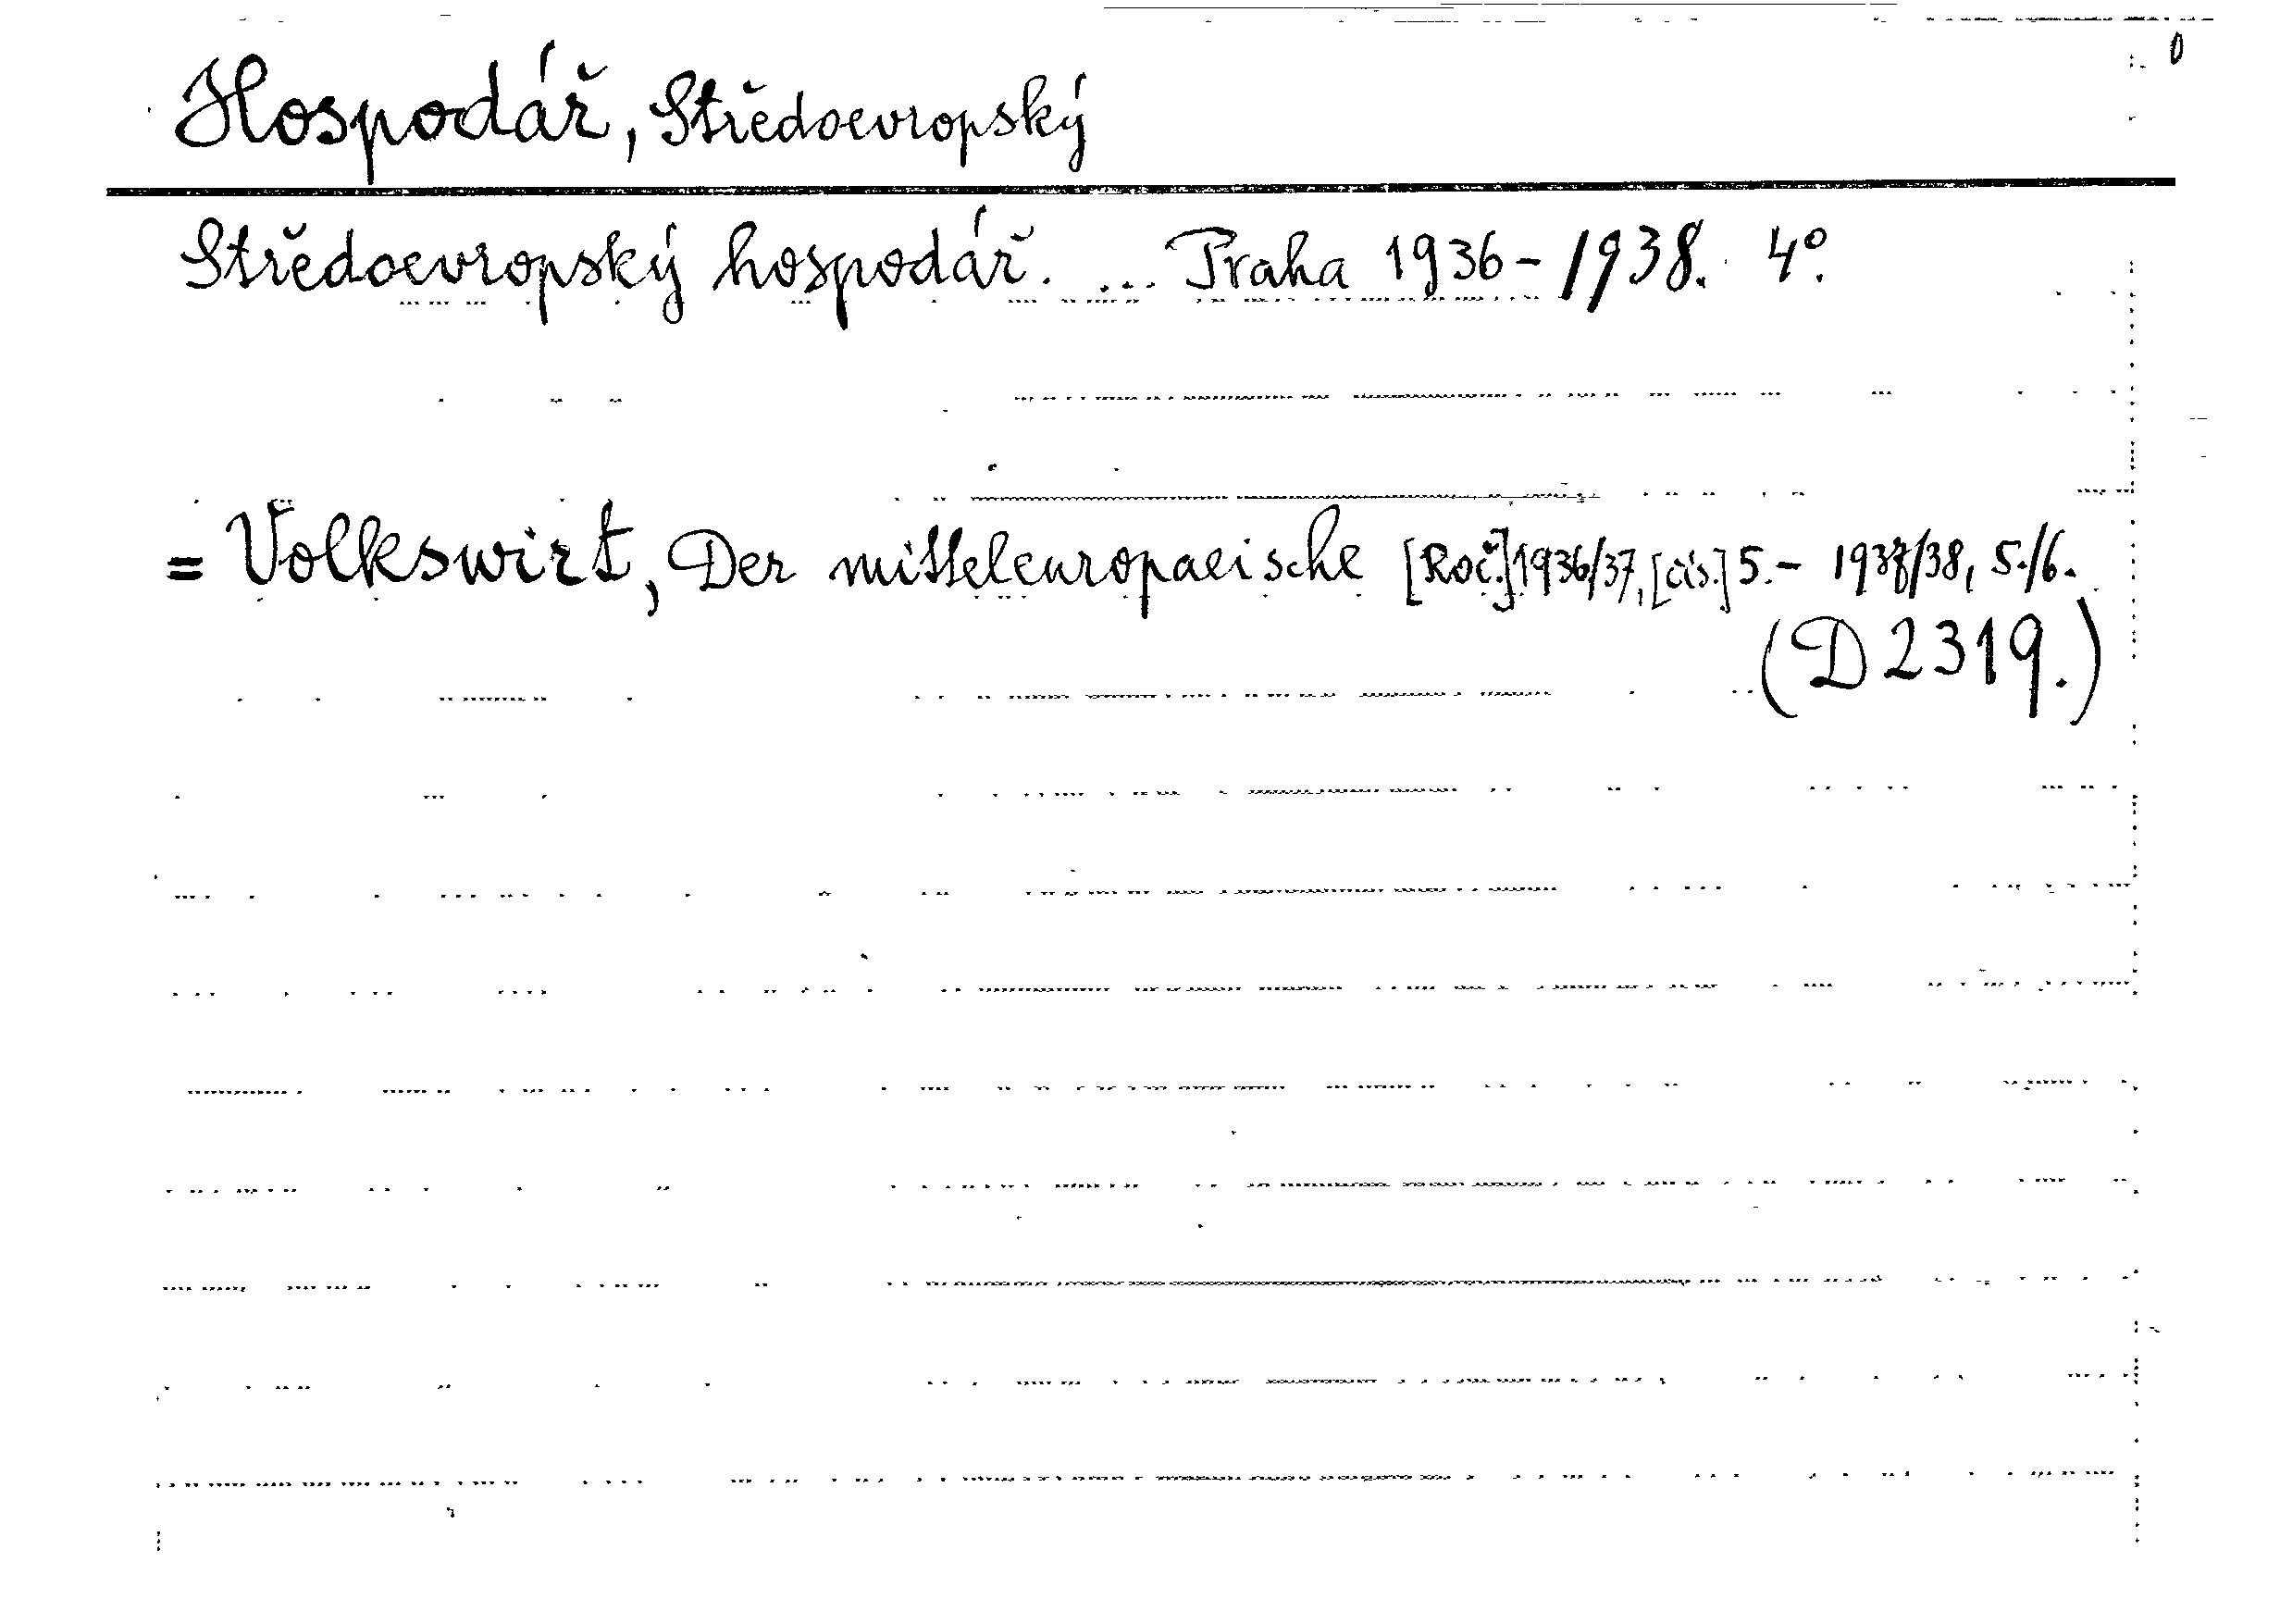 0
Hospodář, Středoevropský
Středoevropský hospodář. ... Praha 1936-1938. 4°.
= Volkswirt, Der mitteleuropaeische [Roč.] 1936/37, [čís.] 5.- 1937/38, 5./6.
(D 2319.)